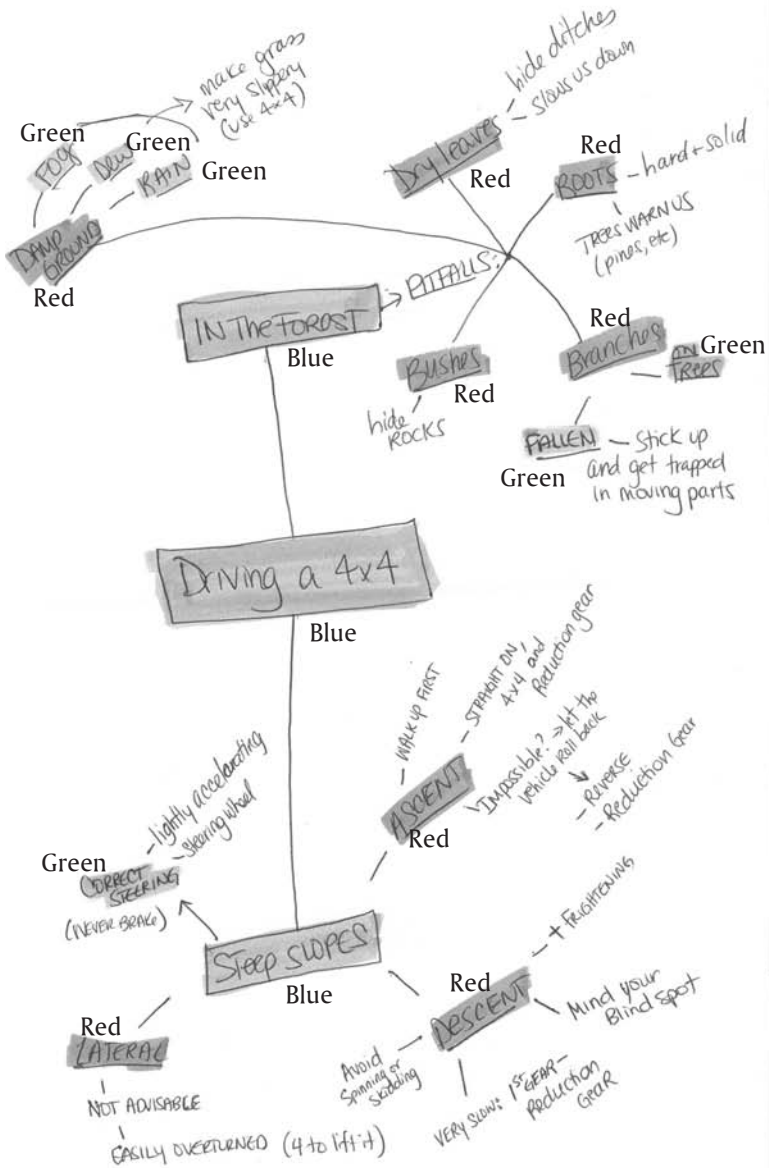 hide ditches
slows us down
Dry leaves
Red
make grass
very slippery
(use 4x4)
Green
FOG
Green
DEW
Green
RAIN
DAMP
GROUND
Red
Red
ROOTS
hard + solid
TREES WARN US
(pines, etc)
IN The FOREST
Blue
PITFALLS:
Bushes
Red
hide
ROCKS
Red
Branches
Green
ON
TREES
FALLEN
Green
Stick up
and get trapped
in moving parts
Driving a 4x4
Blue
WALK UP FIRST
STRAIGHT ON,
4x4 and
Reduction gear
ASCENT
Red
Impossible? → let the
vehicle Roll back
- REVERSE
- Reduction Gear
Green
CORRECT
STEERING
(NEVER BRAKE)
- lightly accelerating
- steering wheel
Steep SLOPES
Blue
Red
LATERAL
NOT ADVISABLE
EASILY OVERTURNED (4 to lift it)
Red
DESCENT
+ FRIGHTENING
Mind your
Blind Spot
Avoid
Spinning or
Skidding
VERY SLOW: 1ST GEAR –
Reduction
GEAR